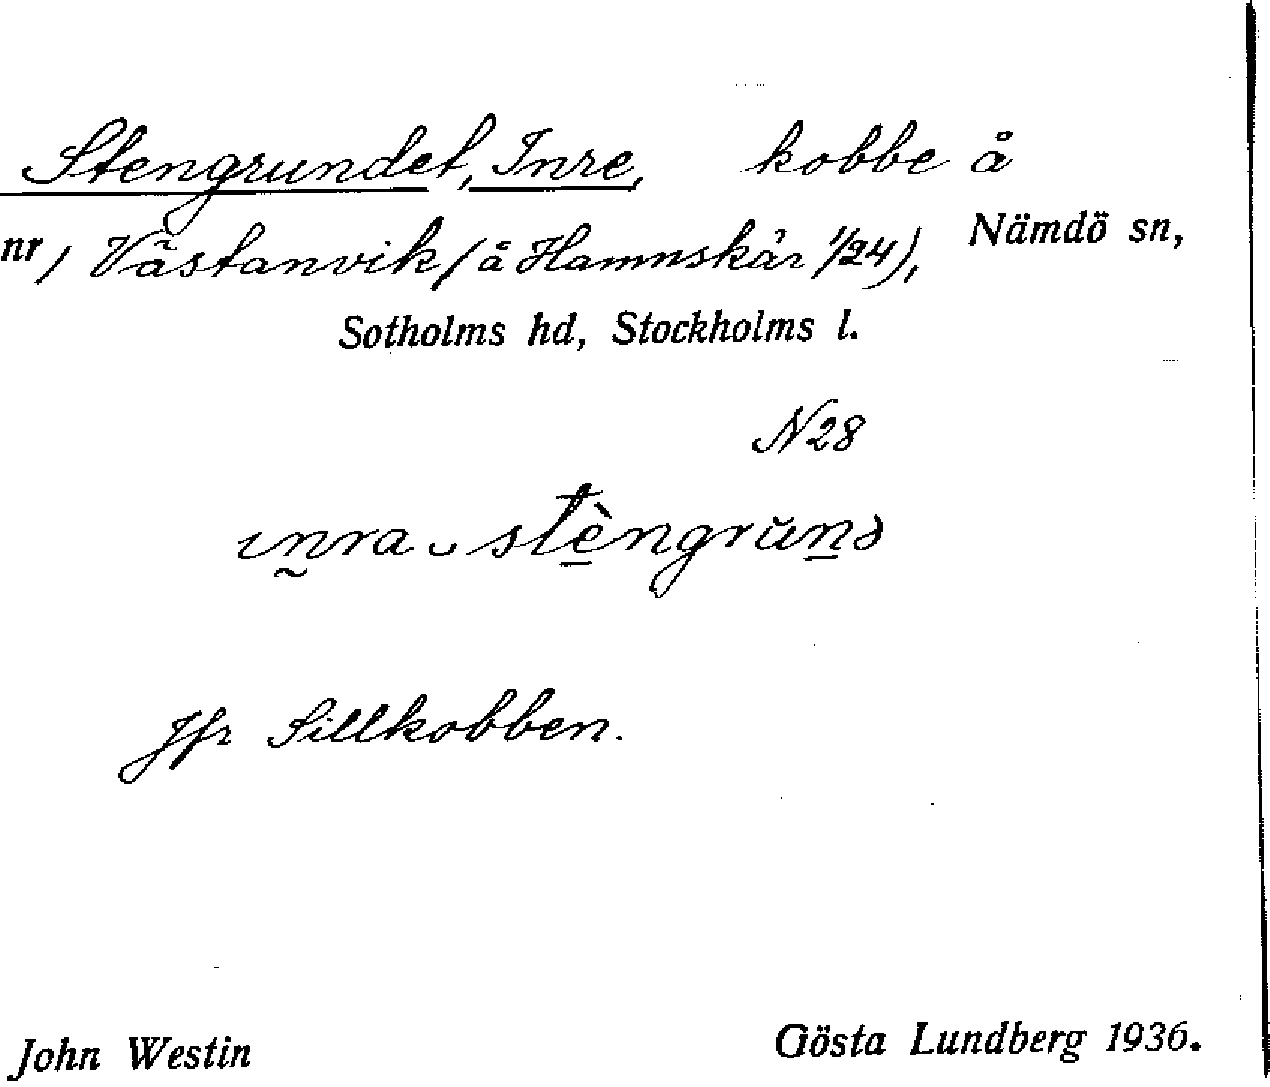 Stengrundet, Inre, kobbe å
nr, Västanvik (å Hamnskär 1/24), Nämdö sn,
Sotholms hd, Stockholms l.
N28
Jfr Sillkobben.
John Westin Gösta Lundberg 1936.